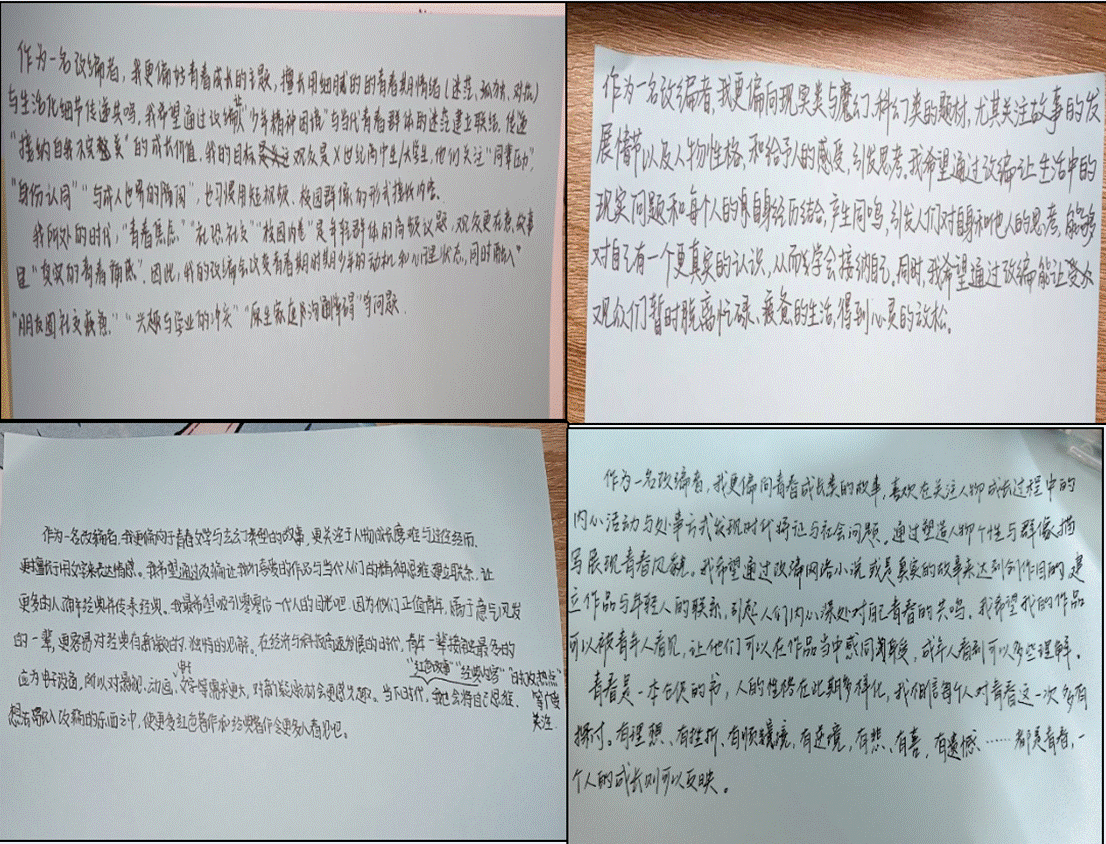 作为一名改编者，我更偏好青春成长的主题，擅长用细腻的的青春期情绪（迷茫、孤独、对抗）
与生活化细节传递共鸣。我希望通过改编"少年精神困境"与当代青春群体的迷茫建立联结，传递
"接纳自我不完整美"的成长价值，我的目标观众是X世纪高中生/大学生，他们关注"同辈压力"，
"身份认同""与成人世界的隔阂"，也习惯用短视频、校园群像的形式接收内容。
我所处的时代，"青春焦虑""社恐社交""校园内卷"是年轻群体的高频议题，观众更在意故事
里"真实的青春痛感"。因此，我的改编会改变青春期时期少年的动机和心理状态，同时融入"
"朋友圈社交歧视""兴趣与学业的冲突""原生家庭的沟通障碍"等问题.
作为一名改编者，我更偏向现实类与魔幻、科幻类的题材，尤其关注故事的发
展情节以及人物性格，和给予人的感受，引发思考。我希望通过改编让生活中的
现实问题和每个人的自身经历结合，产生同鸣，引发人们对自身和他人的思考，能够
对自己有一个更真实的认识，从而学会接纳自己。同时，我希望通过改编能让受众
观众们暂时脱离忙碌、疲惫的生活，得到心灵的放松。
作为一名改编者，我更偏向于青春文学与玄幻类型的故事，更关注于人物成长磨难与过往经历，
更擅长于用文字来表达情感。我希望通过改编让我们喜爱的作品与当代人们的精神思维建立联系，让
更多的人海年经典并传承经典。我最希望吸引零零后一代人的目光吧，因为他们正值青年，属于意气风发
的一辈，更容易对经典有新颖的、独特的见解。在经济与科技高速发展的时代，青年一辈接触最多的
"红色故事""经典名著""时政热点"
应为电子设备，所以对影视、动画、文字等需求更大，对奇幻题材会更感兴趣。当下时代，我也会将自己思维、等广受
想法融入改编的东西之中，使更多红色著作和经典著作令更多人看见吧。关注
作为一名改编者，我更偏向青春成长类的故事，喜欢在关注人物成长过程中的
内心活动与处事方式发现时代特征与社会问题。通过塑造人物个性与群像描
写展现青春风貌。我希望通过改编网络小说或是真实的故事来达到创作目的，建
立作品与年轻人的联系，引起人们内心深处对自己青春的共鸣。我希望我的作品
可以被青年人看见，让他们可以在作品当中感同身受，成年人看到可以多些理解。
青春是一本仓促的书，人的性格在此期多样化，我相信每个人对青春这一次多有
探讨。有理想、有挫折、有顺境，有逆境，有悲、有喜，有遗憾……都是青春，一
个人的成长则可以反映。